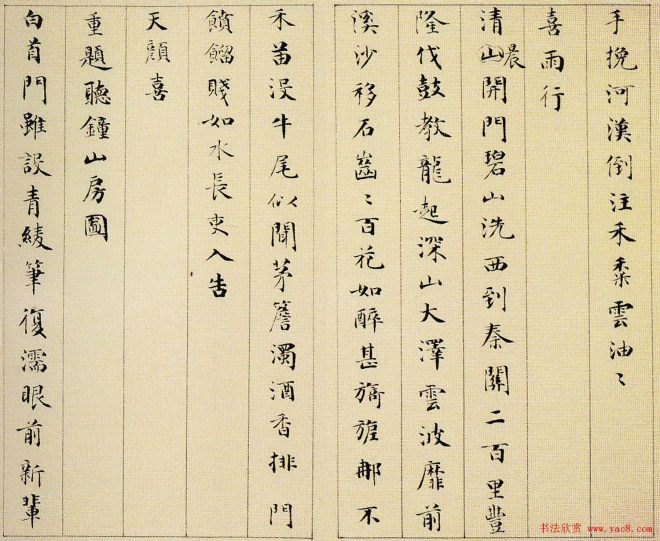 手挽河漢倒注禾黍雲油〻
喜雨行
清晨開門碧山洗西到秦關二百里豐
隆伐鼓教龍起深山大澤雲波靡前
溪沙移石齒〻百花如醉甚旖旎郝不
禾苗没牛尾似聞茅簷濁酒香排門
饙餾賤如水長吏入告
天顔喜
重題聽鐘山房圖
白首門雖設青綾筆復濡眼前新輩
书法欣赏 www.yac8.com